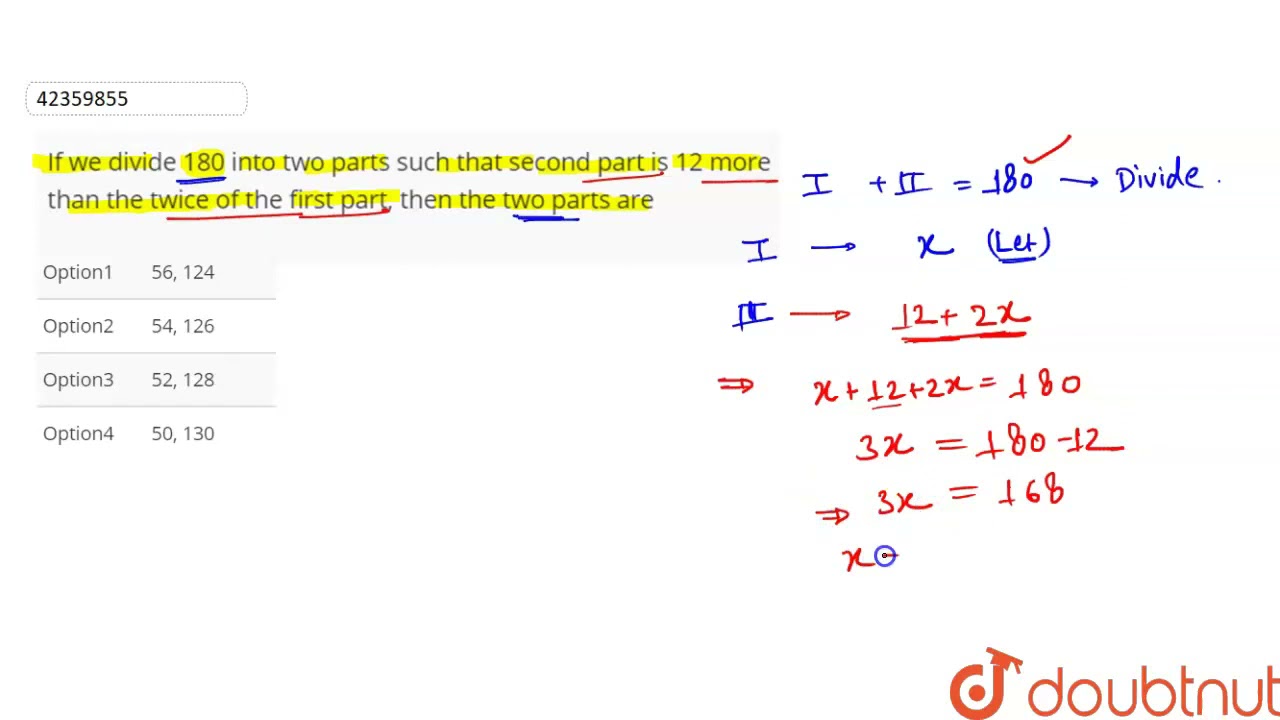 42359855
If we divide 180 into two parts such that second part is 12 more
than the twice of the first part, then the two parts are
Option1 56, 124
Option2 54, 126
Option3 52, 128
Option4 50, 130
I + II = 180 → Divide.
I → x (Let)
II → 12 + 2x
⇒ x + 12 + 2x = 180
3x = 180 - 12
⇒ 3x = 168
x
doubtnut